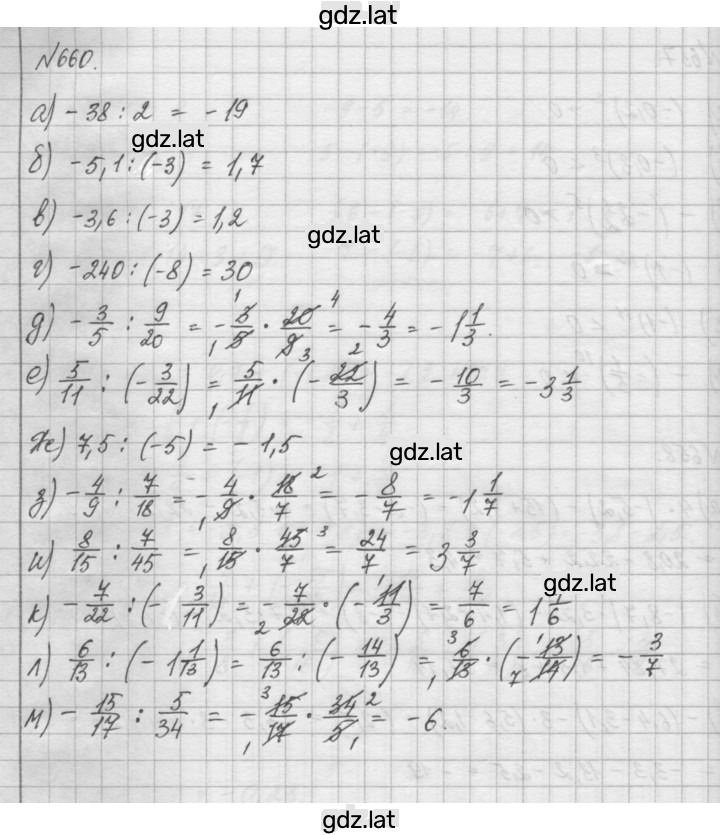 gdz.lat
№660.
а) -38 : 2 = -19
gdz.lat
б) -5,1 : (-3) = 1,7
в) -3,6 : (-3) = 1,2
gdz.lat
г) -240 : (-8) = 30
д) -3/5 : 9/20 = -3/5 · 20/9 = -4/3 = -1 1/3.
е) 5/11 : (-3/22) = 5/11 · (-22/3) = -10/3 = -3 1/3
ж) 7,5 : (-5) = -1,5
gdz.lat
з) -4/9 : 7/18 = -4/9 · 18/7 = -8/7 = -1 1/7
и) 8/15 : 7/45 = 8/15 · 45/7 = 24/7 = 3 3/7
gdz.lat
к) -7/22 : (-3/11) = -7/22 · (-11/3) = 7/6 = 1 1/6
л) 6/13 : (-1 1/13) = 6/13 : (-14/13) = 6/13 · (-13/14) = -3/7
м) -15/17 : 5/34 = -15/17 · 34/5 = -6.
gdz.lat